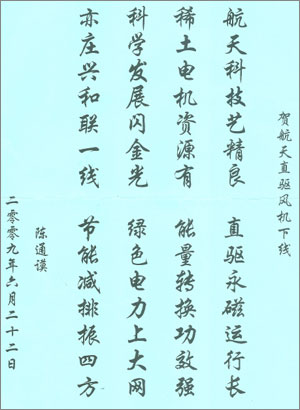 贺航天直驱风机下线
航天科技艺精良 直驱永磁运行长
稀土电机资源有 能量转换功效强
科学发展闪金光 绿色电力上大网
亦庄兴和联一线 节能减排振四方
陈通谟
二零零九年六月二十二日